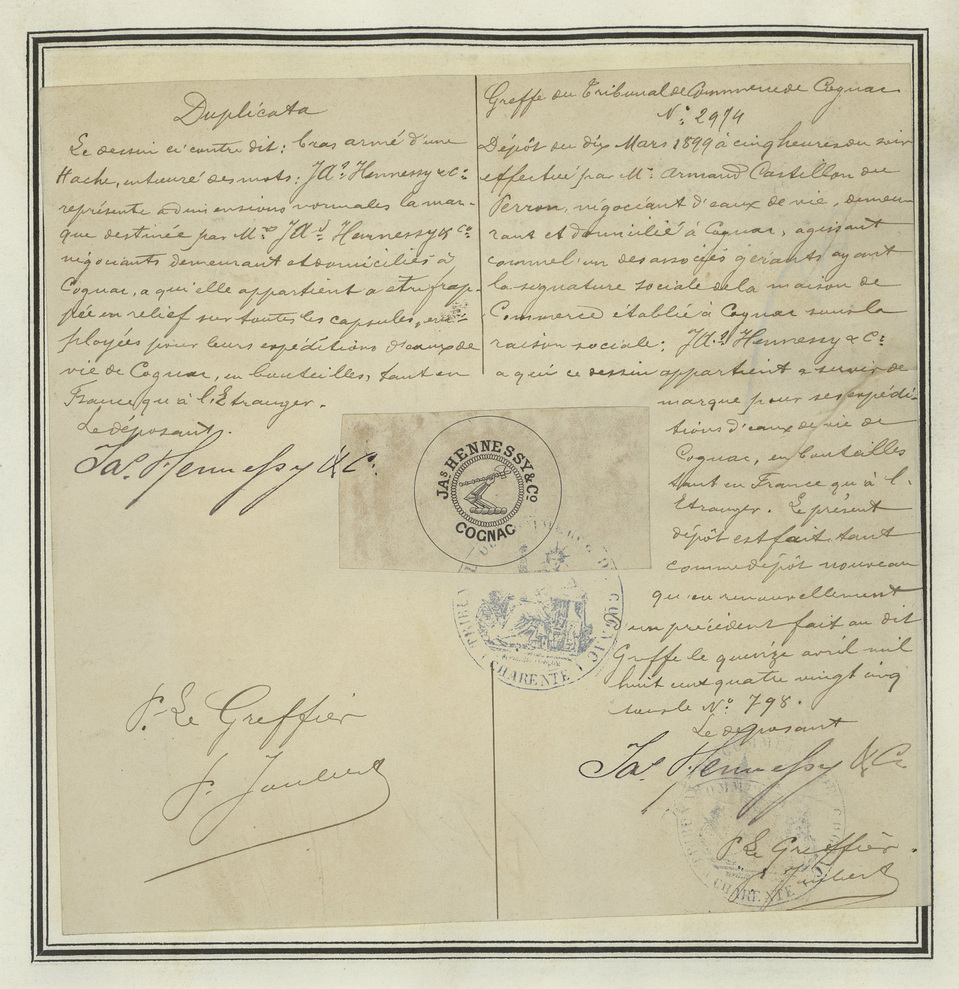 Duplicata
Le dessin ci contre dit: bras armé d'une
Hache, entouré des mots: Jas Hennessy & Co:
représente à dimensions normales la mar-
que destinée par Mrs Jas Hennessy & Co
négociants demeurant et domiciliés à
Cognac, a qui elle appartient a etre frap-
pée en relief sur toutes les capsules, em-
ployées pour leurs expéditions d'eaux de
vie de Cognac, en bouteilles, tant en
France qu'à l'Etranger.
Le déposant.
Jas. Hennessy & Co.
P. Le Greffier
Greffe du Tribunal de Commerce de Cognac
No: 2974
Dépôt du dix Mars 1899 à cinq heures du soir
effectué par Mr. Armand Castillon du
Perron, négociant d'eaux de vie, demeu
rant et domicilié à Cognac, agissant
comme l'un des associés gérants ayant
la signature sociale de la maison de
Commerce établie à Cognac sous la
raison sociale: Jas Hennessy & Co:
a qui ce dessin appartient a servir de
marque pour ses expédi-
tions d'eaux de vie de
Cognac, en bouteilles
tant en France qu'à l'-
Etranger. Le présent
dépôt est fait tant
comme dépôt nouveau
qu'en renouvellement
d'un précédent fait au dit
Greffe le quinze avril mil
huit cent quatre vingt cinq
sous le No. 798.
Le déposant
Jas. Hennessy & Co.
P. Le Greffier.
JAS HENNESSY & CO
COGNAC
TRIBUNAL DE COMMERCE DE COGNAC
CHARENTE